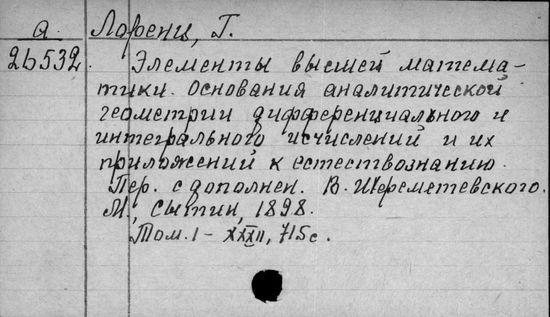 а. Лоренц, Г.
2б532. Элементы высшей матема-
тики. Основания аналитической
геометрии дифференциального и
интегрального исчислений и их
приложений к естествознанию.
Пер. с дополнен. В. Шереметевского.
М., Сытин, 1898.
Том. 1 - XXXII, 715 с.